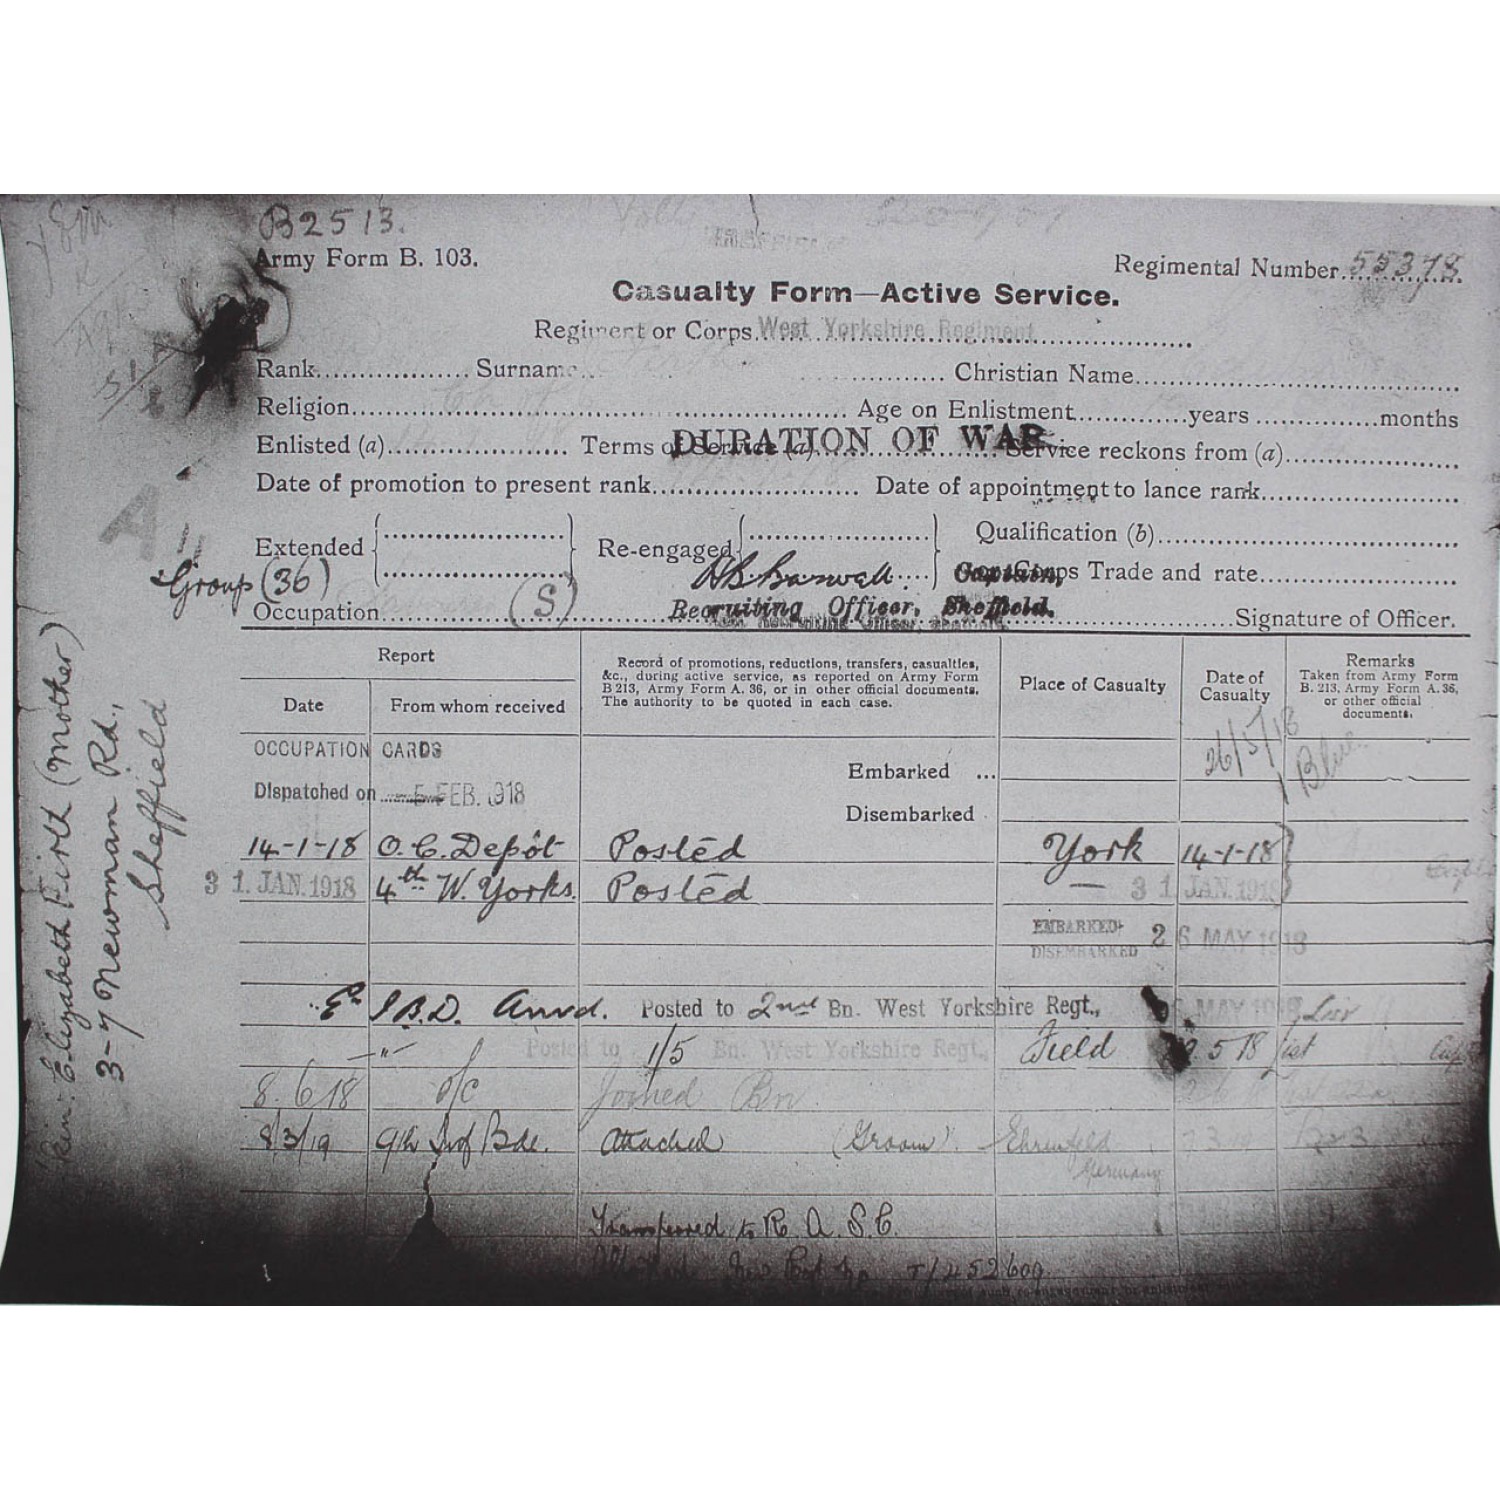 B2513.
Army Form B. 103.
Regimental Number 55378
Casualty Form—Active Service.
Regiment or Corps West Yorkshire Regiment
Rank Surname Christian Name
Religion Age on Enlistment years months
Enlisted (a) Terms of Service (a) DURATION OF WAR Service reckons from (a)
Date of promotion to present rank Date of appointment to lance rank
Extended Re-engaged Qualification (b)
or Corps Trade and rate
Captain,
Group (36)
Occupation (S) Recruiting Officer, Sheffield. Signature of Officer.
Elizabeth Firth (Mother)
3-7 Newman Rd.,
Sheffield
Report
Date From whom received
Record of promotions, reductions, transfers, casualties,
&c., during active service, as reported on Army Form
B 213, Army Form A. 36, or in other official documents.
The authority to be quoted in each case.
Place of Casualty
Date of
Casualty
Remarks
Taken from Army Form
B. 213, Army Form A. 36,
or other official
documents.
OCCUPATION CARDS
Dispatched on 5 FEB. 1918
Embarked ...
26/5/18
Disembarked
14-1-18 O.C. Depôt Posted York 14-1-18
31. JAN. 1918 4th W. Yorks. Posted — 31 JAN. 1918
EMBARKED
DISEMBARKED
26 MAY 1918
I.B.D. Arrvd. Posted to 2nd Bn. West Yorkshire Regt., MAY 1918
—"— Posted to 1/5 Bn. West Yorkshire Regt., Field 5 18
8.6.18 o/c Joined Bn.
8/3/19 9th Inf Bde. Attached (Groom). Ehrenfeld
Germany
Transferred to R.A.S.C.
T/452609